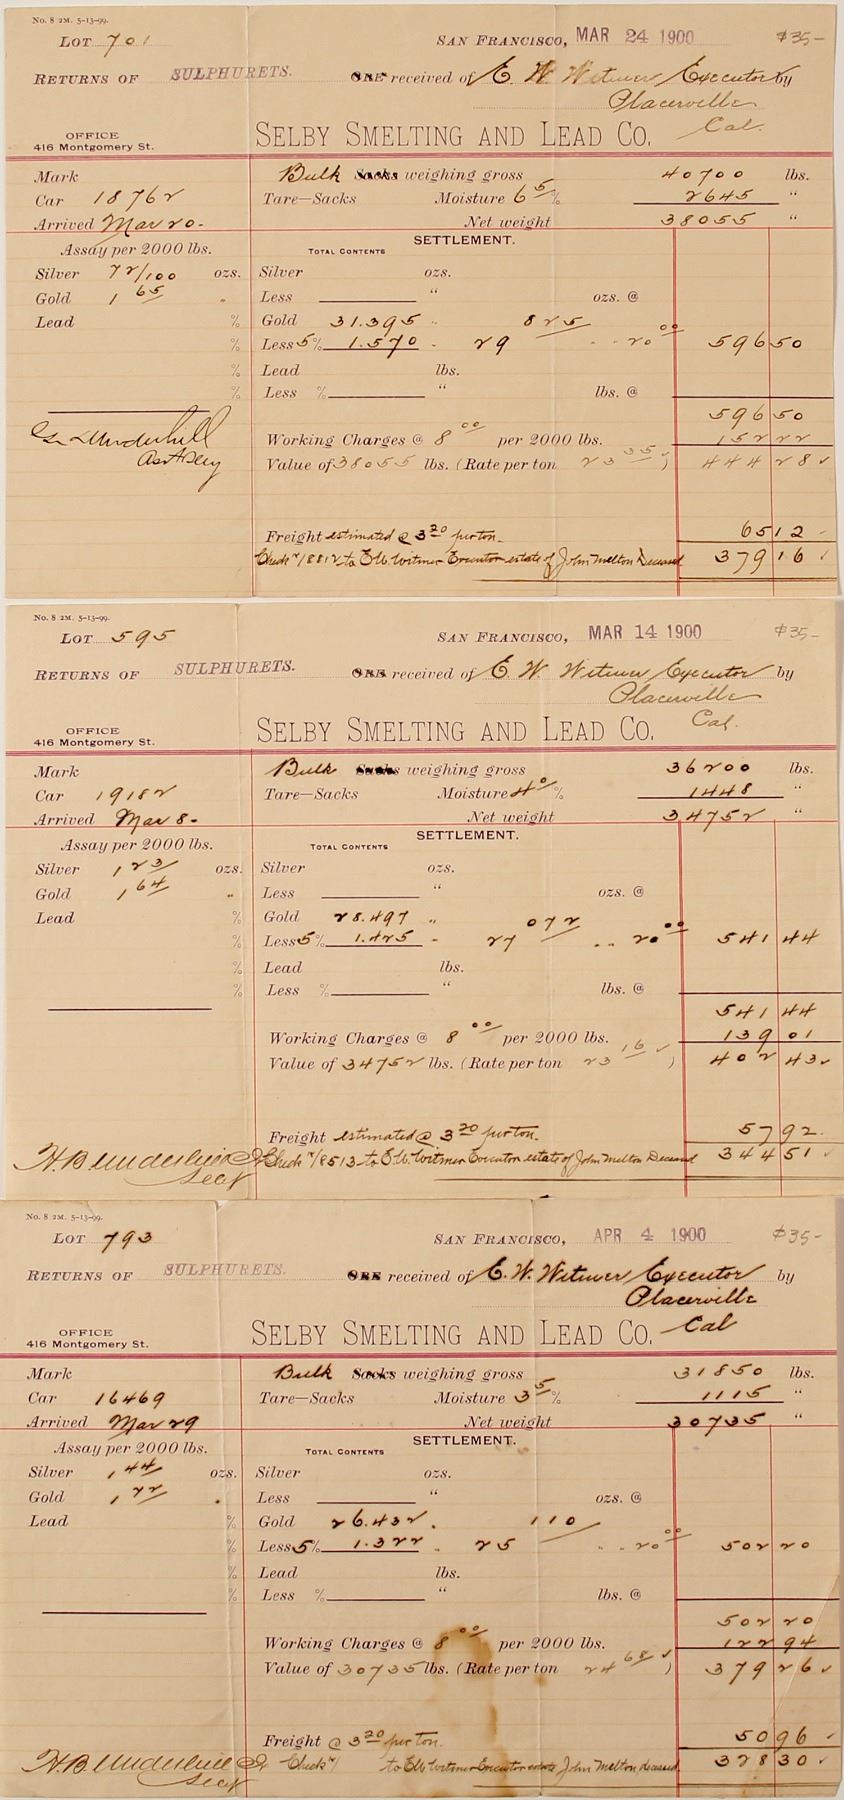 No. 8 2M. 5-13-99.
LOT 701 SAN FRANCISCO, MAR 24 1900 $35-
RETURNS OF SULPHURETS. ORE received of E. W. Witmer Executor by
Placerville
Cal.
OFFICE
416 Montgomery St. SELBY SMELTING AND LEAD CO.
Mark Bulk Sacks weighing gross 40700 lbs.
Car 18762 Tare—Sacks Moisture 6 5/ % 2645 "
Arrived Mar 20- Net weight 38055 "
Assay per 2000 lbs. SETTLEMENT.
TOTAL CONTENTS
Silver 72/100 ozs. Silver ozs.
Gold 1 65 " Less " ozs. @
Lead % Gold 31.395 " 825
% Less 5% 1.570 " 29 " " 20 00 596 50
% Lead lbs.
% Less % " lbs. @
596 50
Working Charges @ 8 00 per 2000 lbs. 152 22
Value of 38055 lbs. (Rate per ton 23 35 ✓) 444 28 ✓
Underhill
Asst Secy
Freight estimated @ 3 20 per ton. 65 12 ✓
Check # 18812 to E.W. Witmer Executor estate of John Melton Deceased 379 16 ✓
No. 8 2M. 5-13-99.
LOT 595 SAN FRANCISCO, MAR 14 1900 $35-
RETURNS OF SULPHURETS. ORE received of E. W. Witmer Executor by
Placerville
Cal.
OFFICE
416 Montgomery St. SELBY SMELTING AND LEAD CO.
Mark Bulk Sacks weighing gross 36200 lbs.
Car 19182 Tare—Sacks Moisture 4 0/ % 1448 "
Arrived Mar 8- Net weight 34752 "
Assay per 2000 lbs. SETTLEMENT.
TOTAL CONTENTS
Silver 1 23/ ozs. Silver ozs.
Gold 1 64 " Less " ozs. @
Lead % Gold 28.497 " 072
% Less 5% 1.425 " 27 " " 20 00 541 44
% Lead lbs.
% Less % " lbs. @
541 44
Working Charges @ 8 00 per 2000 lbs. 139 01
Value of 34752 lbs. (Rate per ton 23 16 ✓) 402 43 ✓
Freight estimated @ 3 20 per ton. 57 92
H.B. Underhill Jr Check # 18513 to E.W. Witmer Executor estate of John Melton Deceased 344 51 ✓
Secy
No. 8 2M. 5-13-99.
LOT 793 SAN FRANCISCO, APR 4 1900 $35-
RETURNS OF SULPHURETS. ORE received of E. W. Witmer Executor by
Placerville
Cal
OFFICE
416 Montgomery St. SELBY SMELTING AND LEAD CO.
Mark Bulk Sacks weighing gross 31850 lbs.
Car 16469 Tare—Sacks Moisture 3 5/ % 1115 "
Arrived Mar 29 Net weight 30735 "
Assay per 2000 lbs. SETTLEMENT.
TOTAL CONTENTS
Silver 1 44/ ozs. Silver ozs.
Gold 1 72 " Less " ozs. @
Lead % Gold 26.432 " 110
% Less 5% 1.322 " 25 " " 20 00 502 20
% Lead lbs.
% Less % " lbs. @
502 20
Working Charges @ 8 00 per 2000 lbs. 122 94
Value of 30735 lbs. (Rate per ton 24 68 ✓) 379 26 ✓
Freight @ 3 20 per ton. 50 96 ✓
H.B. Underhill Jr Check # to E.W. Witmer Executor estate John Melton deceased 328 30 ✓
Secy